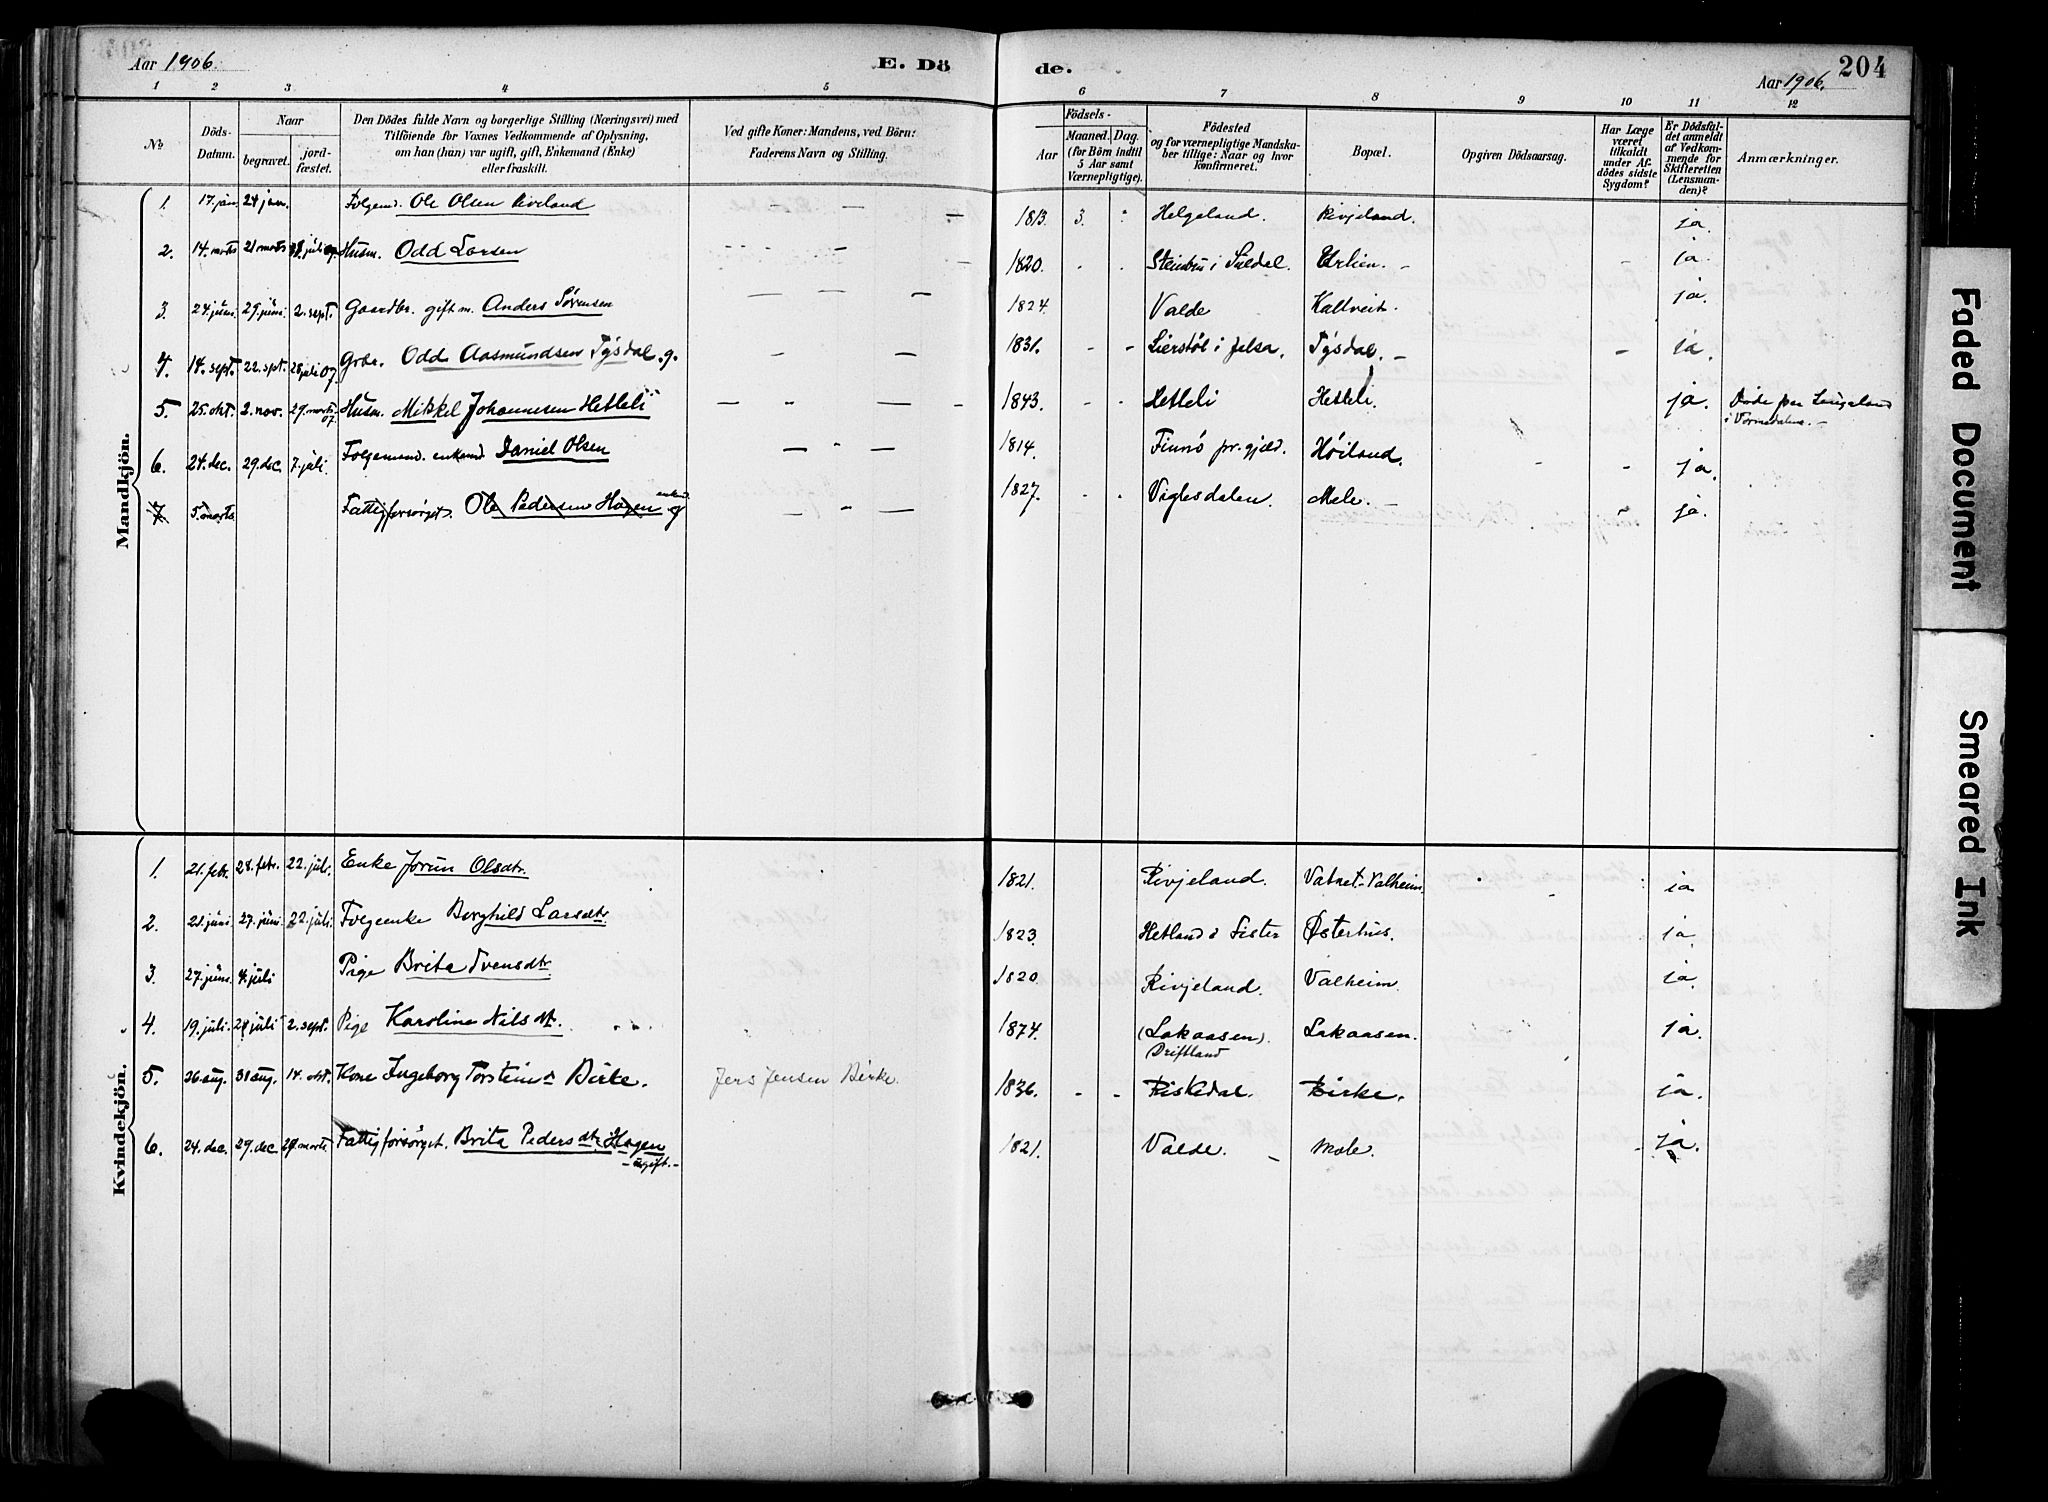 Aar 1906.
E. Dö
de.
Aar 1906.
204
1 2 3 4 5 6 7 8 9 10 11 12
No
Döds-
Datum.
Naar
begravet.
jord-
fæstet.
Den Dödes fulde Navn og borgerlige Stilling (Næringsvei) med
Tilföiende for Voxnes Vedkommende af Oplysning,
om han (hun) var ugift, gift, Enkemand (Enke)
eller fraskilt.
Ved gifte Koner: Mandens, ved Börn:
Faderens Navn og Stilling.
Födsels-
Aar
Maaned. Dag.
(for Börn indtil
5 Aar samt
Værnepligtige).
Födested
og for værnepligtige Mandska-
ber tillige: Naar og hvor
konfirmeret.
Bopæl.
Opgiven Dödsaarsag.
Har Læge
været
tilkaldt
under Af-
dödes sidste
Sygdom?
Er Dödsfal-
det anmeldt
af Vedkom-
mende for
Skifteretten
(Lensman-
den)?
Anmærkninger.
Mandkjön.
1. 17. jan. 24 jan. Folgemd. Ole Olsen — — — 1813. 3. Helgeland. Rivjeland. ja.
2. 14. marts 21 marts juli Husm. Odd Larsen — — 1820. - - i Suldal. - - ja
3. 24. juni. 29. juni. 2. sept. Gaardbr. gift m. Anders Sørensen — — — 1824. Valde Kallveit. ja.
4. 14. sept. 22. spt. 28 juli 07 Grbr. Odd Aasmundsen Tysdal. g. — — 1831. - - i Jelsa. Tysdal. - - ja.
5. 25. okt. 2. nov. 29. marts 07 Husm. Mikkel Johannesen Hetleli — — — 1843. - - Hetleli Hetleli. ja. Døde paa
i
6. 24. dec. 29. dec. 7. juli. Folgemand. enkemd Daniel Olsen — — 1814. Finnö pr. gjeld. Höiland. - ja.
7 5. marts Fattigforsørget. Ole Pedersen Hagen enkemd — - — 1827. - - Viglesdalen. Mele. - ja.
Kvindekjön.
1. 21. febr. 28. febr. 22. juli. Enke Jorun Olsdtr. 1821. Rivjeland. Vatnet-Valheim. ja
2. 21. juni. 27. juni 22. juli. Folgeenke Borghild Larsdtr. 1823. Hetland i Østerhus. ja.
3. 27. juni. 4. juli Pige Brita Svensdtr 1820. Rivjeland. Valheim. ja.
4. 19. juli. juli 2. sept. Pige Karoline Nilsdt. 1874. (Lakaasen). Lakaasen. ja.
Driftland
5. 26. aug. 31 aug. 14. okt. Kone Ingeborg Torsteinsd Birke. Jens Jensen Birke. 1836. - - Riskedal. Birke. ja.
6. 24. dec. 29. dec marts Fattigforsørget. Brita Pedersdtr Hagen 1821. Valde. - Mele. - ja.
- ugift. -
Faded Document
Smeared Ink